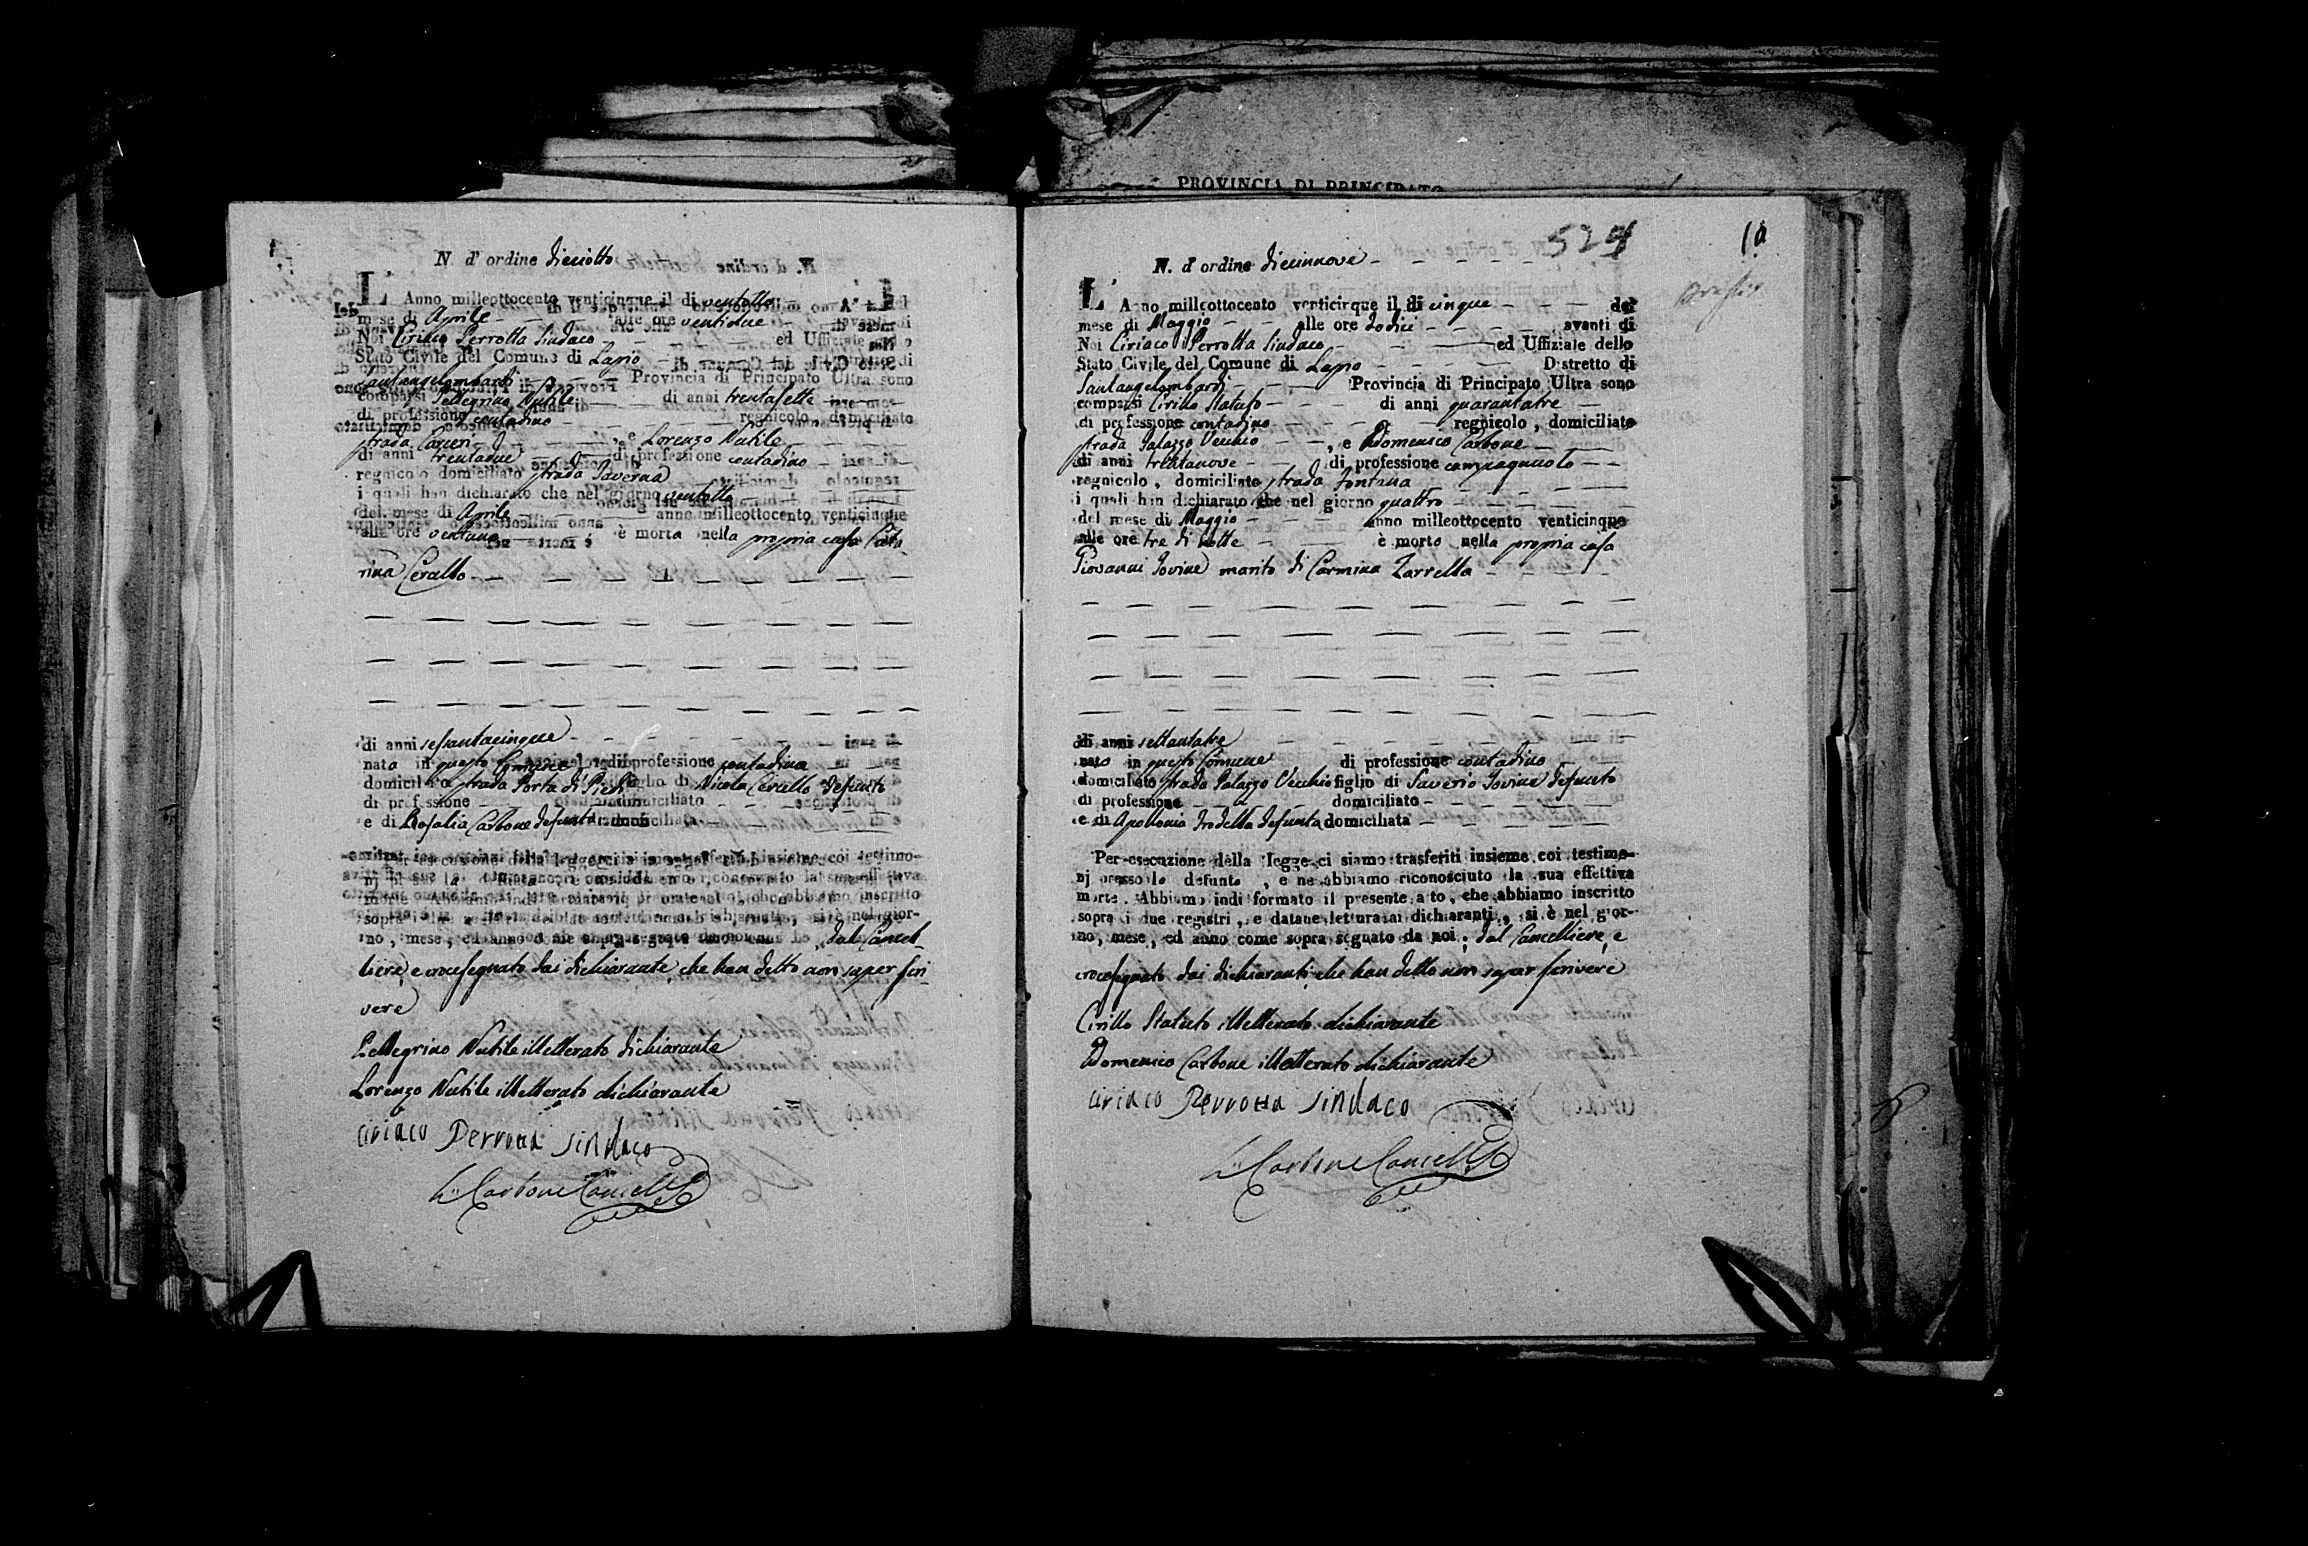 PROVINCIA DI PRINCIPATO
N. d' ordine dieciotto
L' Anno milleottocento venticinque il di ventotto
mese di Aprile alle ore ventidue
Noi Ciriaco Perrotta Sindaco ed Uffiziale
Stato Civile del Comune di Lapio di
Santangelombardi Provincia di Principato Ultra sono
comparsi Pellegrino Nutile di anni trentasette
di professione contadino regnicolo, domiciliato
strada Carceri, e Lorenzo Nutile
di anni trentadue di professione contadino
regnicolo domiciliato strada Taverna
i quali han dichiarato che nel giorno ventotto
del mese di Aprile anno milleottocento venticinque
alle ore ventuna è morta nella propria casa Cate-
rina Cerullo
di anni sessantacinque
nata in questo Comune di professione contadina
domicil strada Porta di Piedi figlio di Nicola Cerullo defunto
di professione domiciliato
e di Rosalia Carbone defunta domiciliata
esecuzione della legge ci siamo trasferiti insieme coi testimo-
morte Abbiamo indi formato il presente atto, che abbiamo inscritto
sopra si è nel gior-
no, mese, ed anno come sopra segnato da noi, dal Cancel-
liere, e crocesegnato dai dichiarante, che han detto non saper scri-
vere
Pellegrino Nutile illetterato dichiarante
Lorenzo Nutile illetterato dichiarante
Ciriaco Perrotta Sindaco
Carbone Cancell
524
N. d' ordine diecinnove
L' Anno milleottocento venticinque il di cinque del
mese di Maggio alle ore dodici avanti di
Noi Ciriaco Perrotta Sindaco ed Uffiziale dello
Stato Civile del Comune di Lapio Distretto di
Santangelombardi Provincia di Principato Ultra sono
comparsi Cirillo Statuto di anni quarantatre
di professione contadino regnicolo, domiciliato
strada Palazzo Vecchio, e Domenico Carbone
di anni trentanove di professione campagnuolo
regnicolo, domiciliato strada Fontana
i quali han dichiarato che nel giorno quattro
del mese di Maggio anno milleottocento venticinque
alle ore tre di notte è morto nella propria casa
Giovanni Iovine marito di Carmina Zarrella
di anni settantatre
nato in questo Comune di professione contadino
domiciliato strada Palazzo Vecchio figlio di Saverio Iovine defunto
di professione domiciliato
e di Apollonia Trodella defunta domiciliata
Per esecuzione della legge ci siamo trasferiti insieme coi testimo-
nj presso lo defunto, e ne abbiamo riconosciuto la sua effettiva
morte. Abbiamo indi formato il presente atto, che abbiamo inscritto
sopra i due registri, e datane lettura ai dichiaranti, si è nel gior-
no, mese, ed anno come sopra segnato da noi, dal Cancelliere, e
crocesegnato dai dichiaranti che han detto non saper scrivere
Cirillo Statuto illetterato dichiarante
Domenico Carbone illetterato dichiarante
Ciriaco Perrotta Sindaco
Carbone Cancell